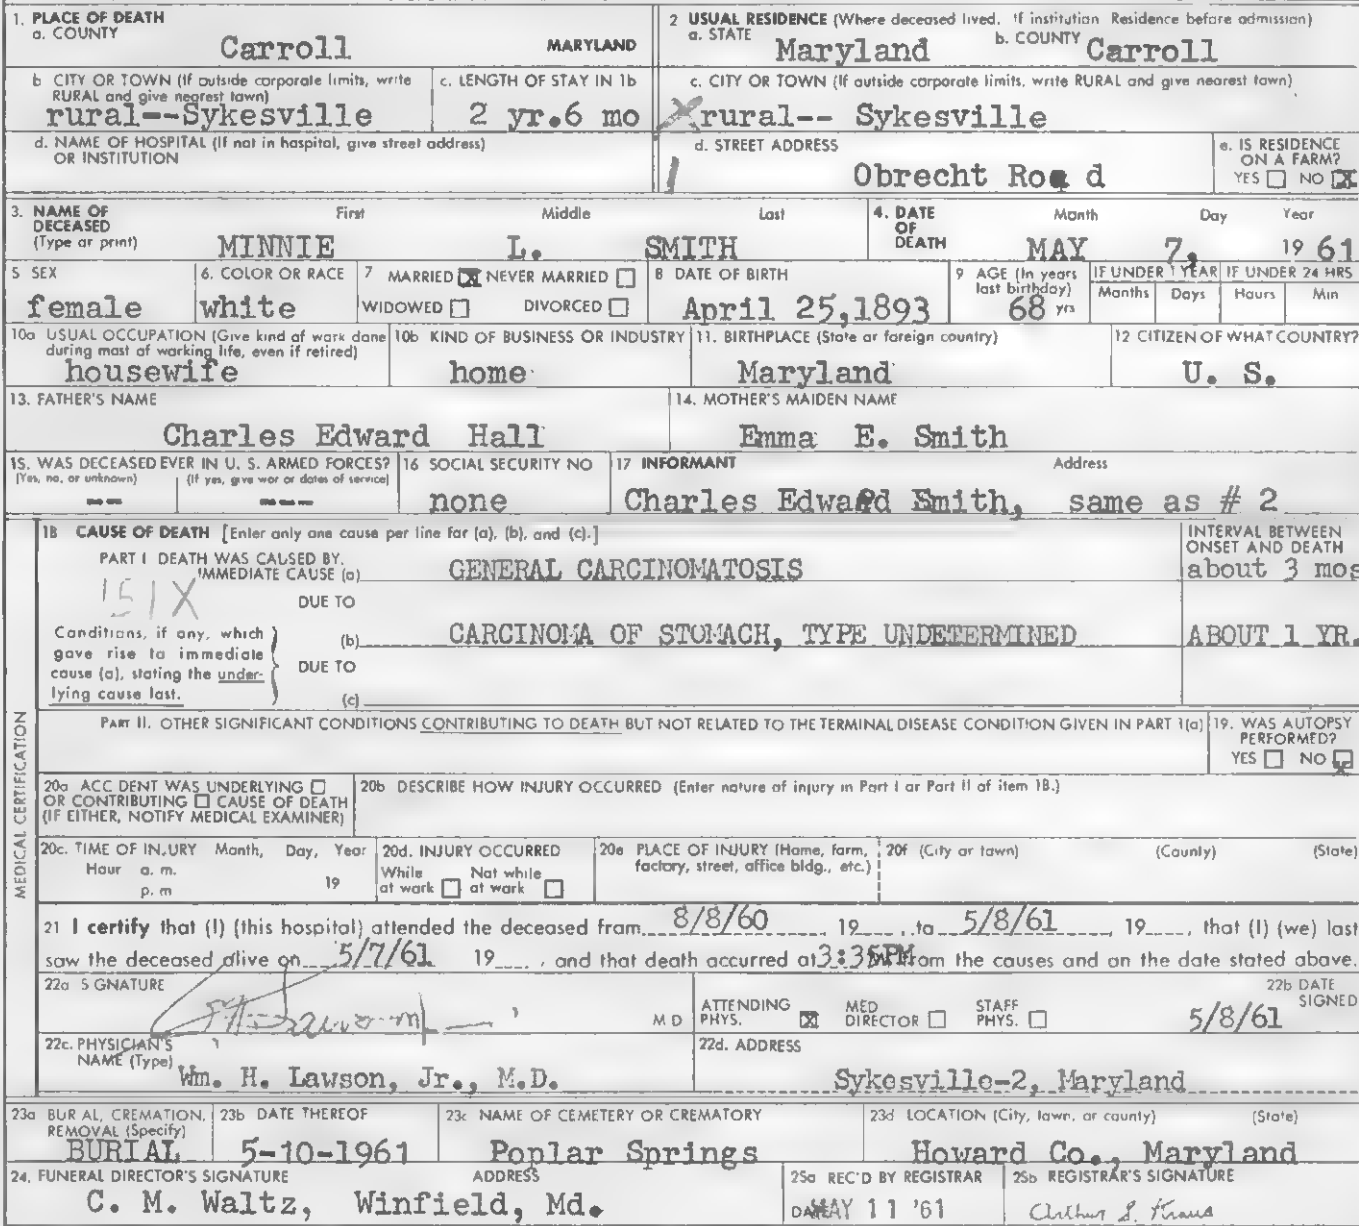 1. PLACE OF DEATH
a. COUNTY
Carroll MARYLAND
2 USUAL RESIDENCE (Where deceased lived. If institution Residence before admission)
a. STATE Maryland b. COUNTY Carroll
b CITY OR TOWN (If outside corporate limits, write RURAL and give nearest town)
rural--Sykesville
c. LENGTH OF STAY IN 1b
2 yr.6 mo
c. CITY OR TOWN (If outside corporate limits, write RURAL and give nearest town)
rural-- Sykesville
d. NAME OF HOSPITAL (If not in hospital, give street address)
OR INSTITUTION
d. STREET ADDRESS
Obrecht Road
e. IS RESIDENCE
ON A FARM?
YES NO X
3. NAME OF
DECEASED
(Type or print)
First Middle Last
MINNIE L. SMITH
4. DATE
OF
DEATH
Month Day Year
MAY 7, 19 61
5 SEX
female
6. COLOR OR RACE
white
7 MARRIED X NEVER MARRIED
WIDOWED DIVORCED
8 DATE OF BIRTH
April 25,1893
9 AGE (In years
last birthday)
68 yrs
IF UNDER 1 YEAR IF UNDER 24 HRS
Months Days Hours Min
10a USUAL OCCUPATION (Give kind of work done
during most of working life, even if retired)
housewife
10b KIND OF BUSINESS OR INDUSTRY
home
11. BIRTHPLACE (State or foreign country)
Maryland
12 CITIZEN OF WHAT COUNTRY?
U. S.
13. FATHER'S NAME
Charles Edward Hall
14. MOTHER'S MAIDEN NAME
Emma E. Smith
15. WAS DECEASED EVER IN U. S. ARMED FORCES?
(Yes, no, or unknown) (If yes, give war or dates of service)
-- ---
16 SOCIAL SECURITY NO
none
17 INFORMANT Address
Charles Edward Smith, same as # 2
18 CAUSE OF DEATH [Enter only one cause per line for (a), (b), and (c).]
INTERVAL BETWEEN
ONSET AND DEATH
PART I DEATH WAS CAUSED BY.
IMMEDIATE CAUSE (a) GENERAL CARCINOMATOSIS about 3 mos
151X
DUE TO
Conditions, if any, which
gave rise to immediate
cause (a), stating the under-
lying cause last.
(b) CARCINOMA OF STOMACH, TYPE UNDETERMINED ABOUT 1 YR.
DUE TO
(c)
MEDICAL CERTIFICATION
PART II. OTHER SIGNIFICANT CONDITIONS CONTRIBUTING TO DEATH BUT NOT RELATED TO THE TERMINAL DISEASE CONDITION GIVEN IN PART I(a)
19. WAS AUTOPSY
PERFORMED?
YES NO X
20a ACC DENT WAS UNDERLYING
OR CONTRIBUTING CAUSE OF DEATH
(IF EITHER, NOTIFY MEDICAL EXAMINER)
20b DESCRIBE HOW INJURY OCCURRED (Enter nature of injury in Part I or Part II of item 18.)
20c. TIME OF INJURY Month, Day, Year
Hour a. m.
p. m 19
20d. INJURY OCCURRED
While Not while
at work at work
20e PLACE OF INJURY (Home, farm,
factory, street, office bldg., etc.)
20f (City or town) (County) (State)
21 I certify that (I) (this hospital) attended the deceased from 8/8/60 19 , to 5/8/61 , 19 , that (I) (we) last
saw the deceased alive on 5/7/61 19 , and that death occurred at 3:35PM from the causes and on the date stated above.
22a S GNATURE
M D
ATTENDING
PHYS. X
MED
DIRECTOR
STAFF
PHYS.
22b DATE
SIGNED
5/8/61
22c. PHYSICIAN'S
NAME (Type) Wm. H. Lawson, Jr., M.D.
22d. ADDRESS
Sykesville-2, Maryland
23a BUR AL, CREMATION,
REMOVAL (Specify)
BURIAL
23b DATE THEREOF
5-10-1961
23c NAME OF CEMETERY OR CREMATORY
Poplar Springs
23d LOCATION (City, town, or county) (State)
Howard Co., Maryland
24. FUNERAL DIRECTOR'S SIGNATURE ADDRESS
C. M. Waltz, Winfield, Md.
25a REC'D BY REGISTRAR
DATE MAY 11 '61
25b REGISTRAR'S SIGNATURE
Arthur S. Kraus